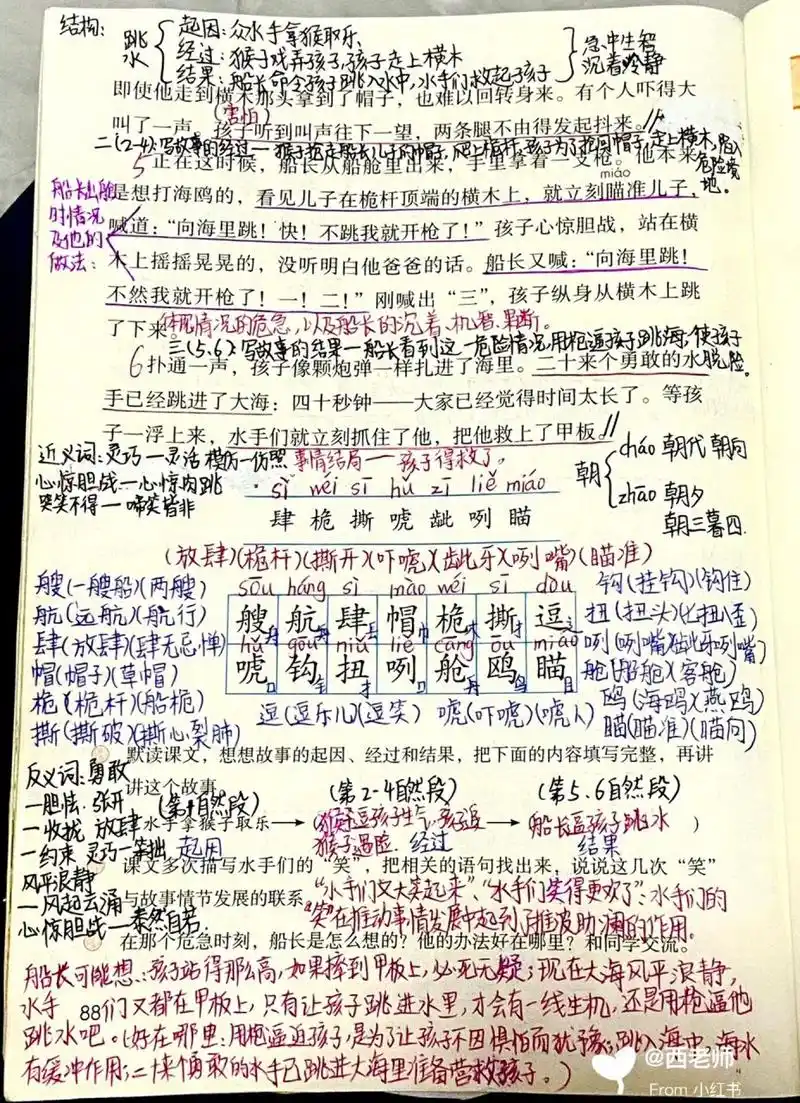 结构：跳水
起因：众水手拿猴取乐
经过：猴子戏弄孩子，孩子走上横木
结果：船长命令孩子跳入水中，水手们救起孩子
急中生智
沉着冷静
即使他走到横木那头拿到了帽子，也难以回转身来。有个人吓得大
(害怕)
叫了一声。孩子听到叫声往下一望，两条腿不由得发起抖来。
二(2-4)写故事的经过一猴子抢走船长儿子的帽子，爬上桅杆，孩子为了抢回帽子，走上横木，陷入危险境地。
5 正在这时候，船长从船舱里出来，手里拿着一支枪。他本来
miáo
是想打海鸥的，看见儿子在桅杆顶端的横木上，就立刻瞄准儿子，
喊道：“向海里跳！快！不跳我就开枪了！”孩子心惊胆战，站在横
木上摇摇晃晃的，没听明白他爸爸的话。船长又喊：“向海里跳！
不然我就开枪了！一！二！”刚喊出“三”，孩子纵身从横木上跳
了下来
船长出舱时情况及他的做法：
体现情况的危急，以及船长的沉着、机智、果断。
三(5.6)：写故事的结果一船长看到这一危险情况，用枪逼孩子跳海，使孩子脱险。
6 扑通一声，孩子像颗炮弹一样扎进了海里。二十来个勇敢的水
手已经跳进了大海：四十秒钟——大家已经觉得时间太长了。等孩
子一浮上来，水手们就立刻抓住了他，把他救上了甲板。
近义词：灵巧一灵活 模仿一仿照
心惊胆战一心惊肉跳
哭笑不得一啼笑皆非
事情结局一孩子得救了。
朝
cháo 朝代 朝向
zhāo 朝夕
朝三暮四
sì wéi sī hǔ zī liě miáo
肆 桅 撕 唬 龇 咧 瞄
(放肆)(桅杆)(撕开)(吓唬)(龇牙)(咧嘴)(瞄准)
艘(一艘船)(两艘)
航(远航)(航行)
肆(放肆)(肆无忌惮)
帽(帽子)(草帽)
桅(桅杆)(船桅)
撕(撕破)(撕心裂肺)
sōu háng sì mào wéi sī dòu
艘 航 肆 帽 桅 撕 逗
hǔ gōu niǔ liě cāng ōu miáo
唬 钩 扭 咧 舱 鸥 瞄
钩(挂钩)(钩住)
扭(扭头)(扭歪)
咧(咧嘴)(龇牙咧嘴)
舱(船舱)(客舱)
鸥(海鸥)(燕鸥)
瞄(瞄准)(瞄向)
逗(逗乐儿)(逗笑) 唬(吓唬)(唬人)
默读课文，想想故事的起因、经过和结果，把下面的内容填写完整，再讲
讲这个故事。
反义词：勇敢
一胆怯 张开
一收拢 放肆
一约束 灵巧一笨拙
风平浪静
一风起云涌
心惊胆战一泰然自若
(第1自然段) (第2-4自然段) (第5.6自然段)
水手拿猴子取乐→(猴子逗孩子生气，孩子追猴子遇险)→(船长逼孩子跳水)
起因 经过 结果
课文多次描写水手们的“笑”，把相关的语句找出来，说说这几次“笑”
与故事情节发展的联系。
“水手们又大笑起来”、“水手们笑得更欢了”：水手们的
“笑”在推动事情发展中起到了推波助澜的作用。
在那个危急时刻，船长是怎么想的？他的办法好在哪里？和同学交流。
船长可能想：孩子站得那么高，如果摔到甲板上，必死无疑；现在大海风平浪静，
水手们又都在甲板上，只有让孩子跳进水里，才会有一线生机，还是用枪逼他
88
跳水吧。(好在哪里：用枪逼近孩子，是为了让孩子不因惧怕而犹豫；跳入海中，海水
有缓冲作用；二十来个勇敢的水手已跳进大海里准备营救孩子。)
@西老师
From 小红书